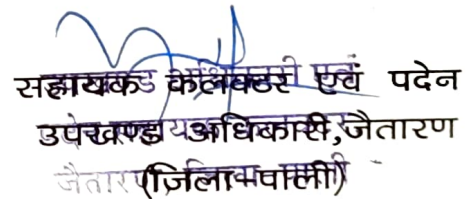 सहायक कलेक्टर एवं पदेन
उपखण्ड अधिकारी, जैतारण
(जिला-पाली)